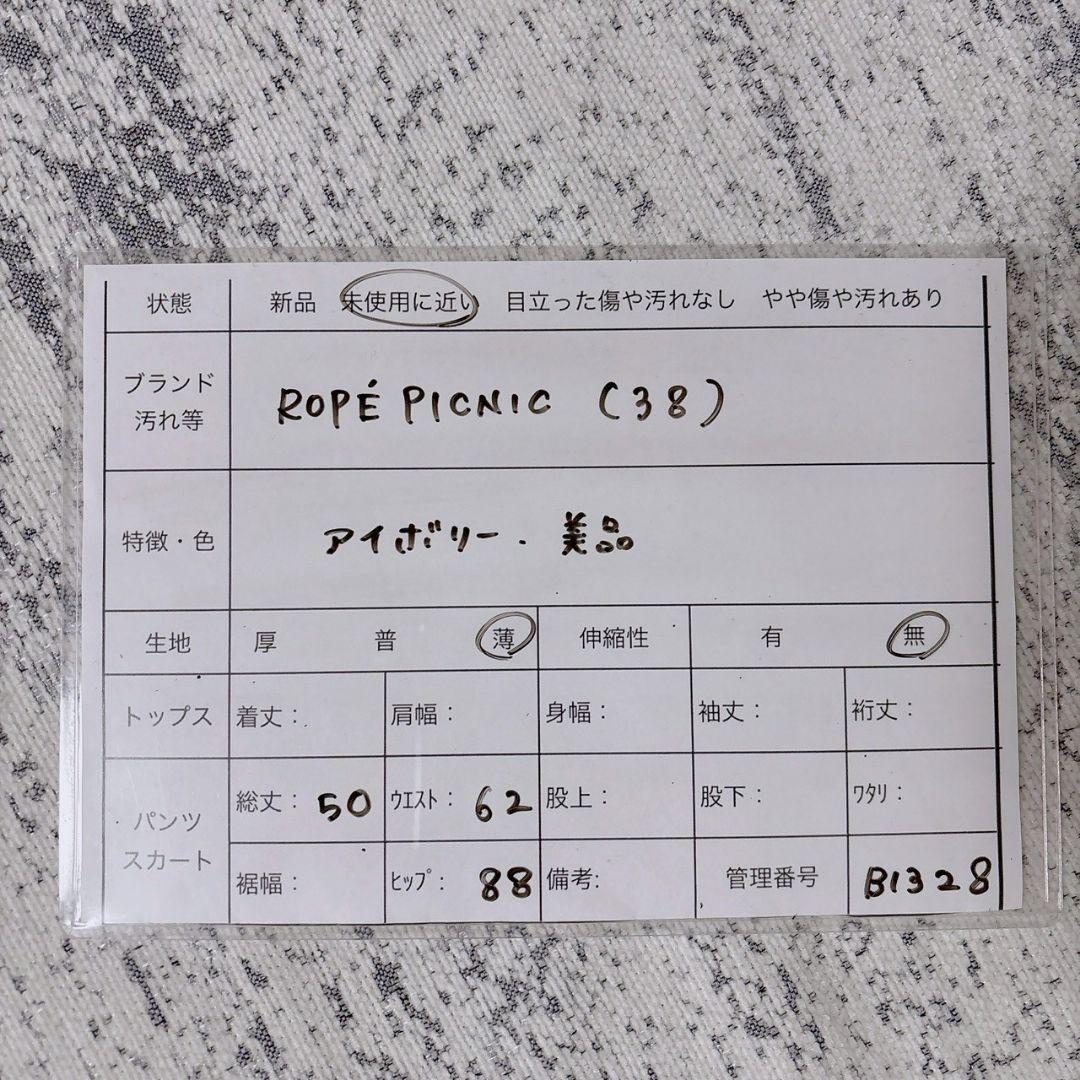 状態 新品 未使用に近い 目立った傷や汚れなし やや傷や汚れあり
ブランド
汚れ等
ROPÉ PICNIC (38)
特徴・色 アイボリー . 美品
生地 厚 普 薄 伸縮性 有 無
トップス 着丈: 肩幅: 身幅: 袖丈: 裄丈:
パンツ
スカート
総丈: 50 ウエスト: 62 股上: 股下: ワタリ:
裾幅: ヒップ: 88 備考: 管理番号 B1328